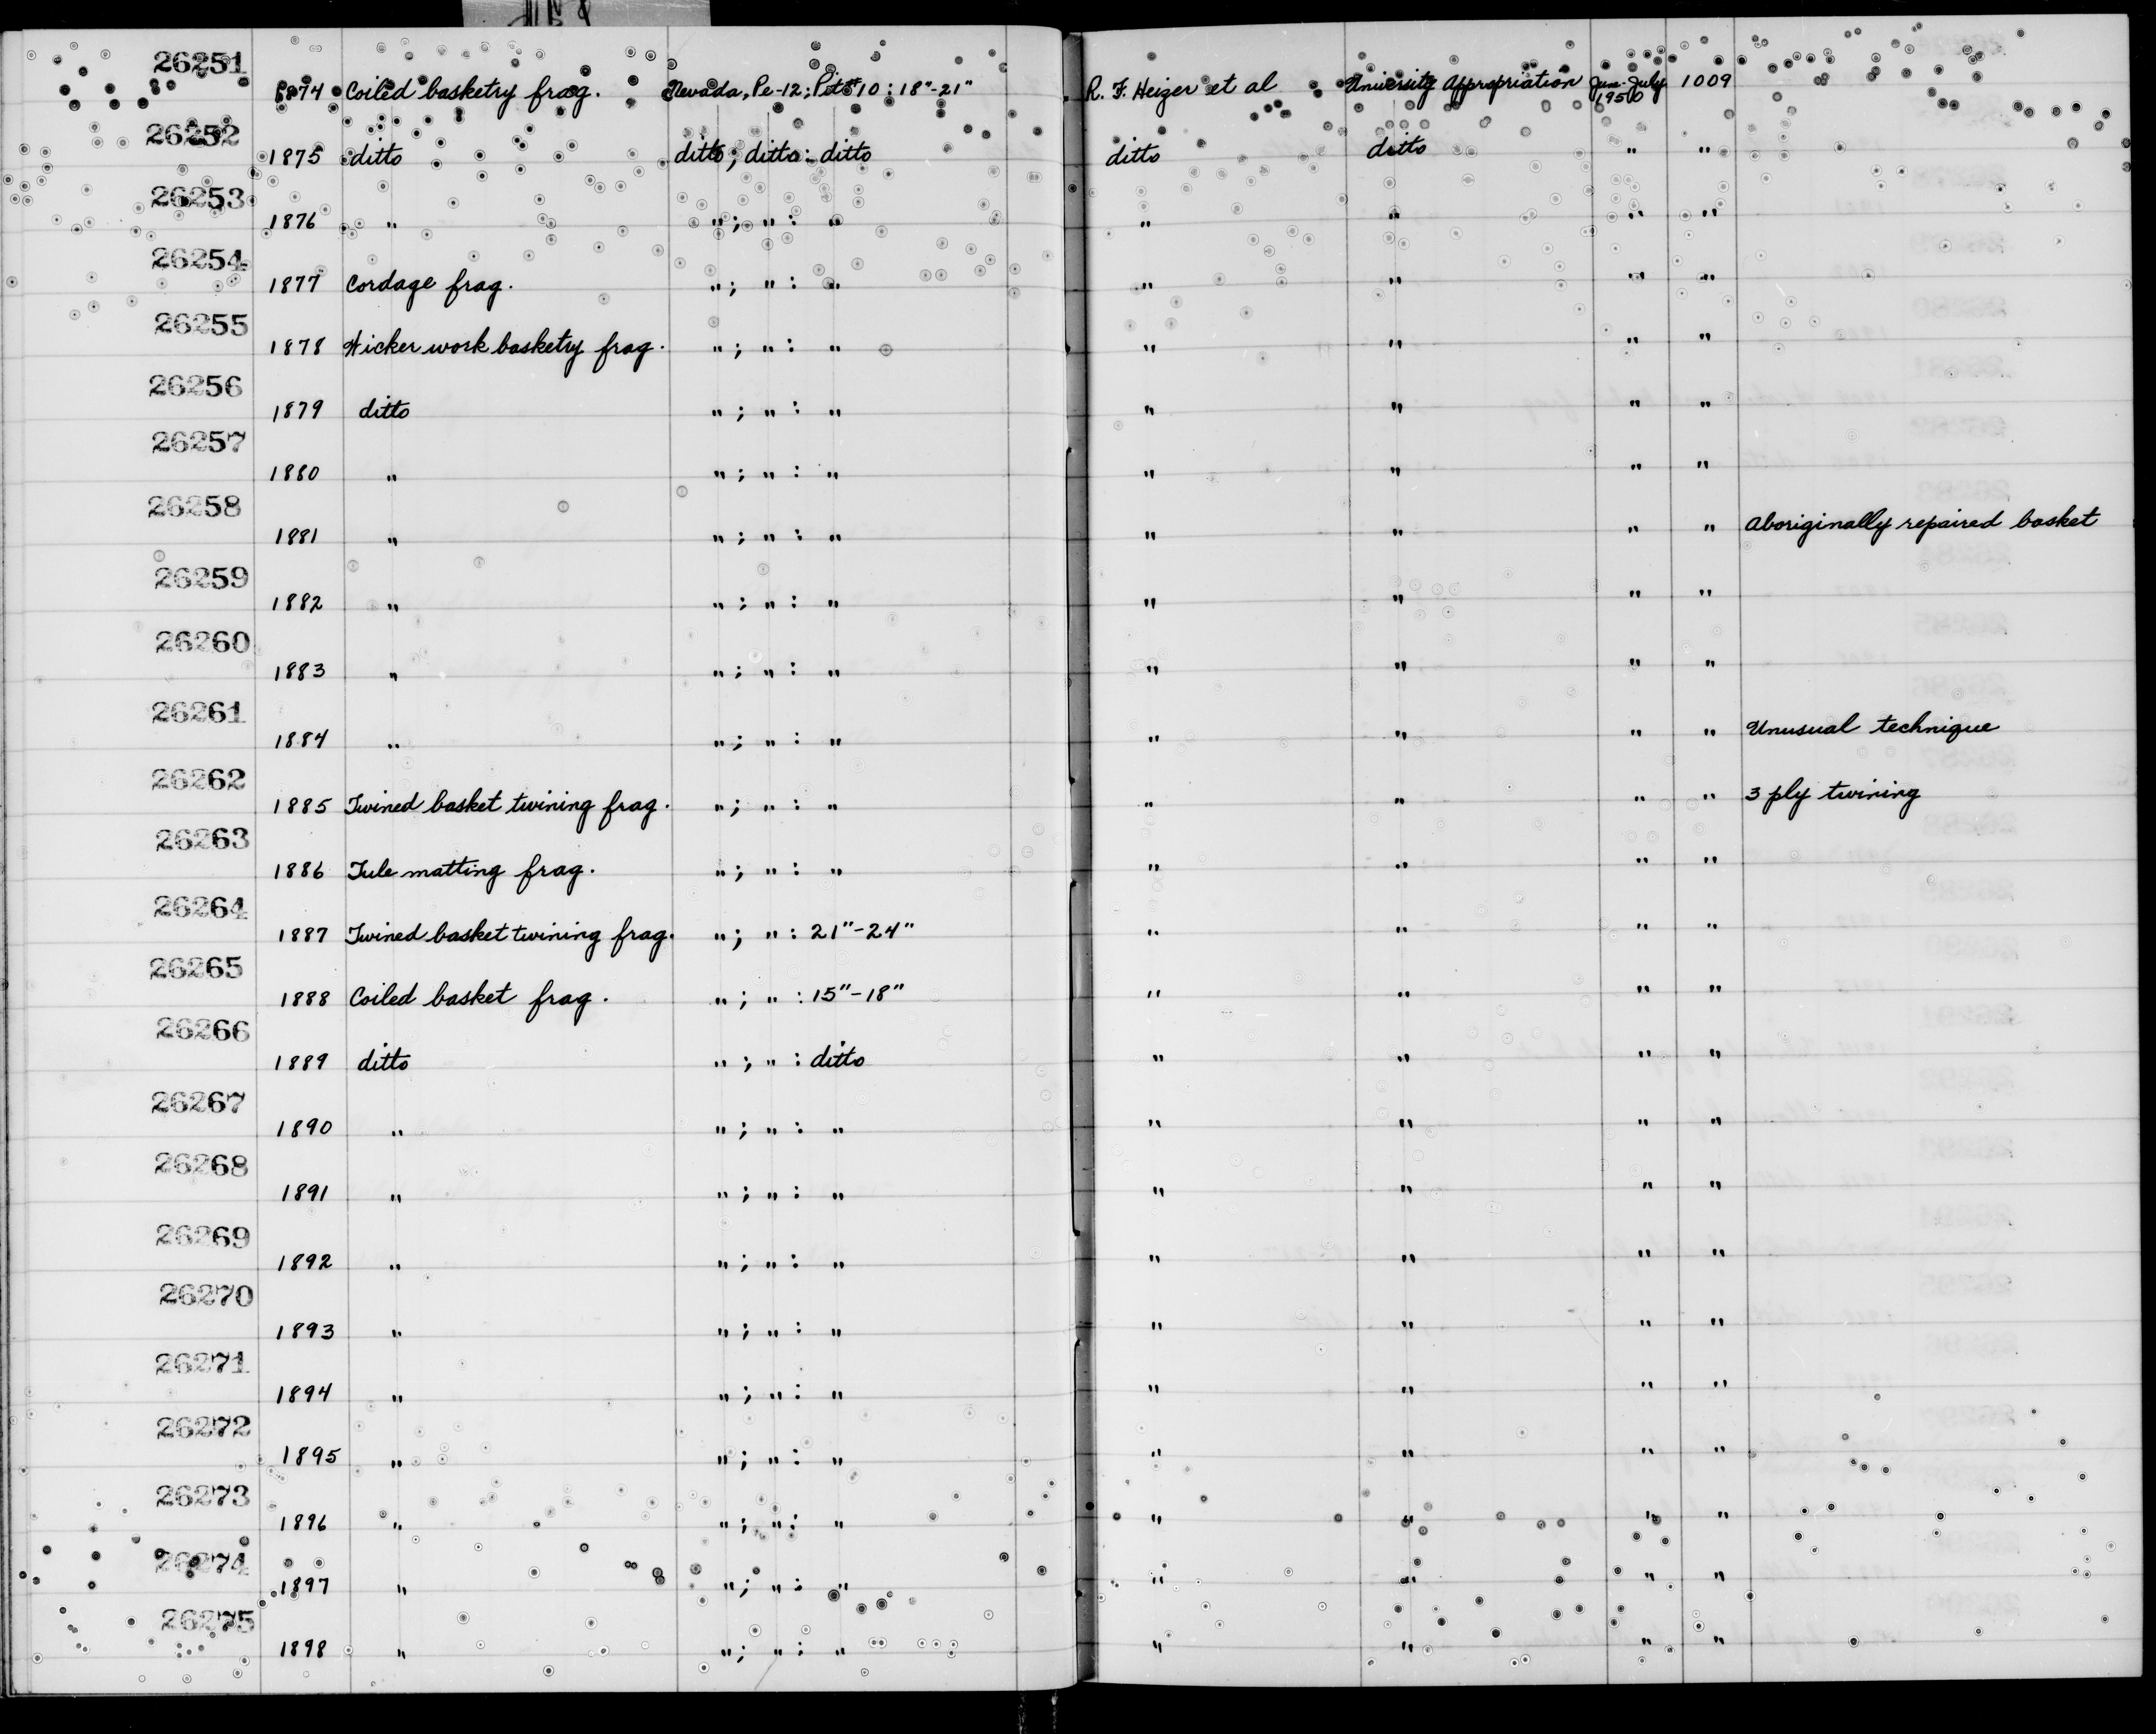 26251
1874 Coiled basketry frag. Nevada, Pe-12; Pit #10 : 18"-21" R. F. Heizer et al University Appropriation June-July 1950 1009
26252
1875 ditto ditto; ditto: ditto ditto ditto " "
26253
1876 " "; " : " " " " "
26254
1877 Cordage frag. "; " : " " " " "
26255
1878 Wicker work basketry frag. "; " : " " " " "
26256
1879 ditto "; " : " " " " "
26257
1880 " "; " : " " " " "
26258
1881 " "; " : " " " " " Aboriginally repaired basket
26259
1882 " "; " : " " " " "
26260
1883 " "; " : " " " " "
26261
1884 " "; " : " " " " " Unusual technique
26262
1885 Twined basket twining frag. "; " : " " " " " 3 ply twining
26263
1886 Tule matting frag. "; " : " " " " "
26264
1887 Twined basket twining frag. "; " : 21"-24" " " " "
26265
1888 Coiled basket frag. "; " : 15"-18" " " " "
26266
1889 ditto "; " : ditto " " " "
26267
1890 " "; " : " " " " "
26268
1891 " "; " : " " " " "
26269
1892 " "; " : " " " " "
26270
1893 " "; " : " " " " "
26271
1894 " "; " : " " " " "
26272
1895 " "; " : " " " " "
26273
1896 " "; " : " " " " "
26274
1897 " "; " : " " " " "
26275
1898 " "; " : " " " " "